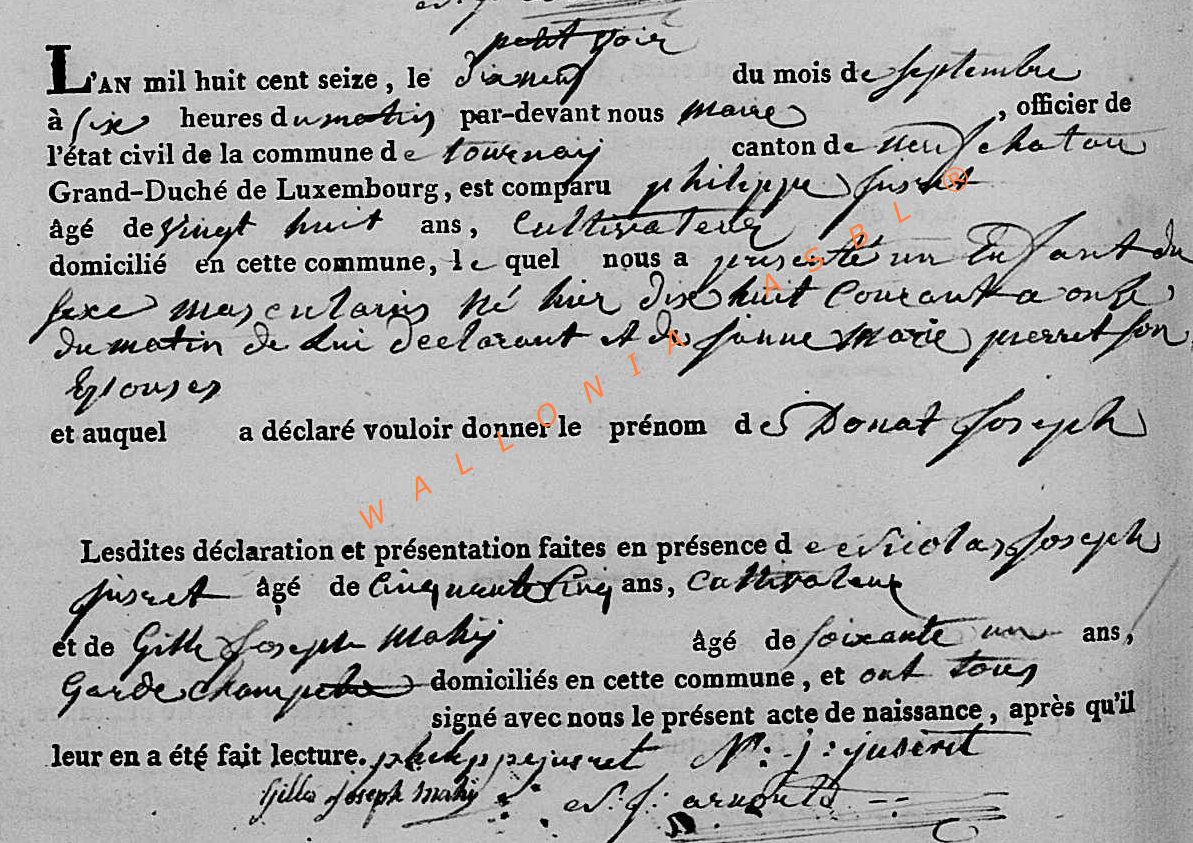 petit voir
L'AN mil huit cent seize, le dixneuf du mois de septembre
à six heures du matin par-devant nous maire, officier de
l'état civil de la commune de tournay canton de neufchateau
Grand-Duché de Luxembourg, est comparu philippe Jusret
âgé de vingt huit ans, Cultivateur
domicilié en cette commune, le quel nous a presenté un Enfant du
sexe masculains né hier dix huit Courant a onze
du matin de Lui declarant et de jeanne Marie pierret son
Epouses
et auquel a déclaré vouloir donner le prénom de Donat Joseph
WALLONIA ASBL ®
Lesdites déclaration et présentation faites en présence de Nicolas Joseph
jusret âgé de Cinquante Cinq ans, Cultivateur
et de Gille Joseph Mahy âgé de soixante un ans,
Garde champetre domiciliés en cette commune, et ont tous
signé avec nous le présent acte de naissance, après qu'il
leur en a été fait lecture. philippe jusret N: j: juseret
Gilles Joseph Mahy J. arnould